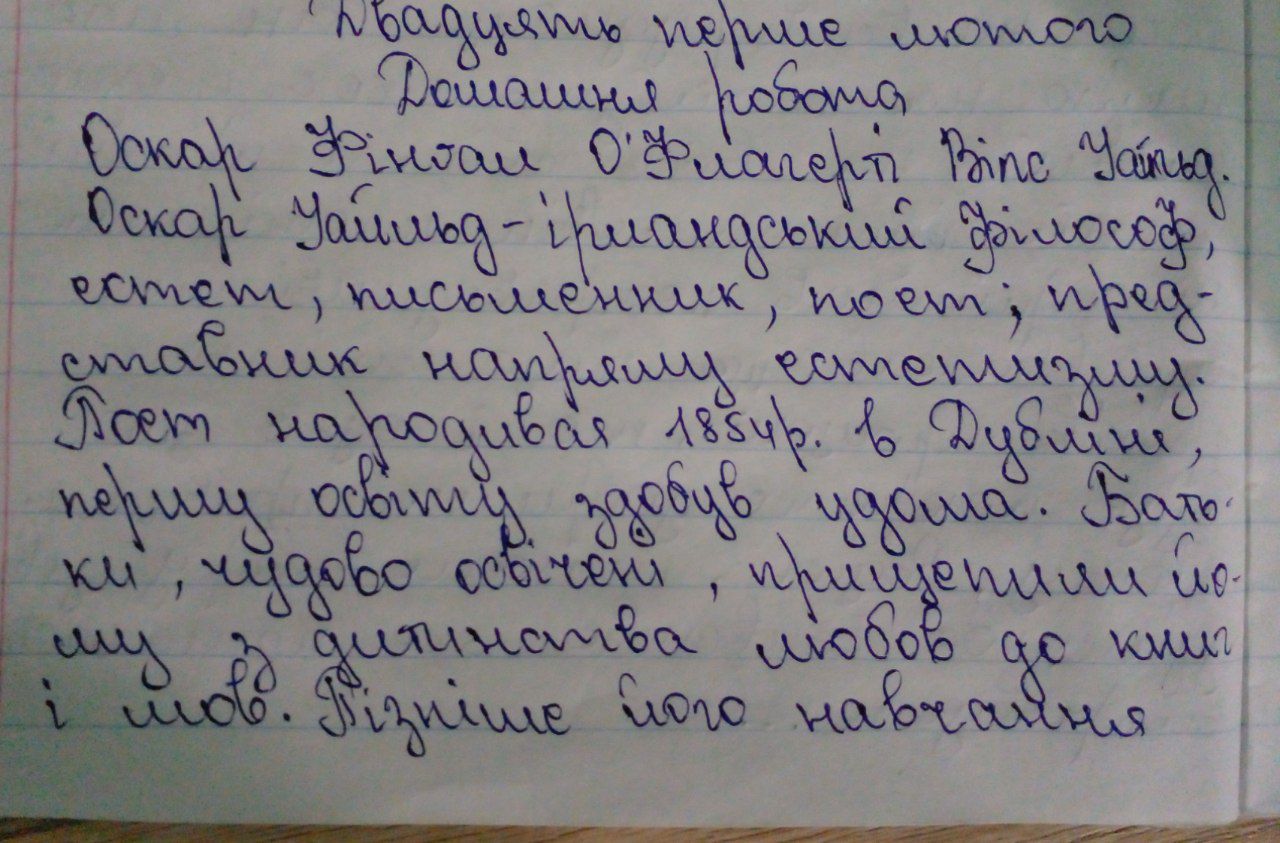 Двадцять перше лютого
Домашня робота
Оскар Фінгал О'Флагерті Вілс Уайльд.
Оскар Уайльд - ірландський філософ,
естет, письменник, поет; пред-
ставник напряму естетизму.
Поет народивая 1854р. в Дубліні,
першу освіту здобув удома. Бать-
ки, чудово освічені, прищепили йо-
му з дитинства любов до книг
і мов. Пізніше його навчання